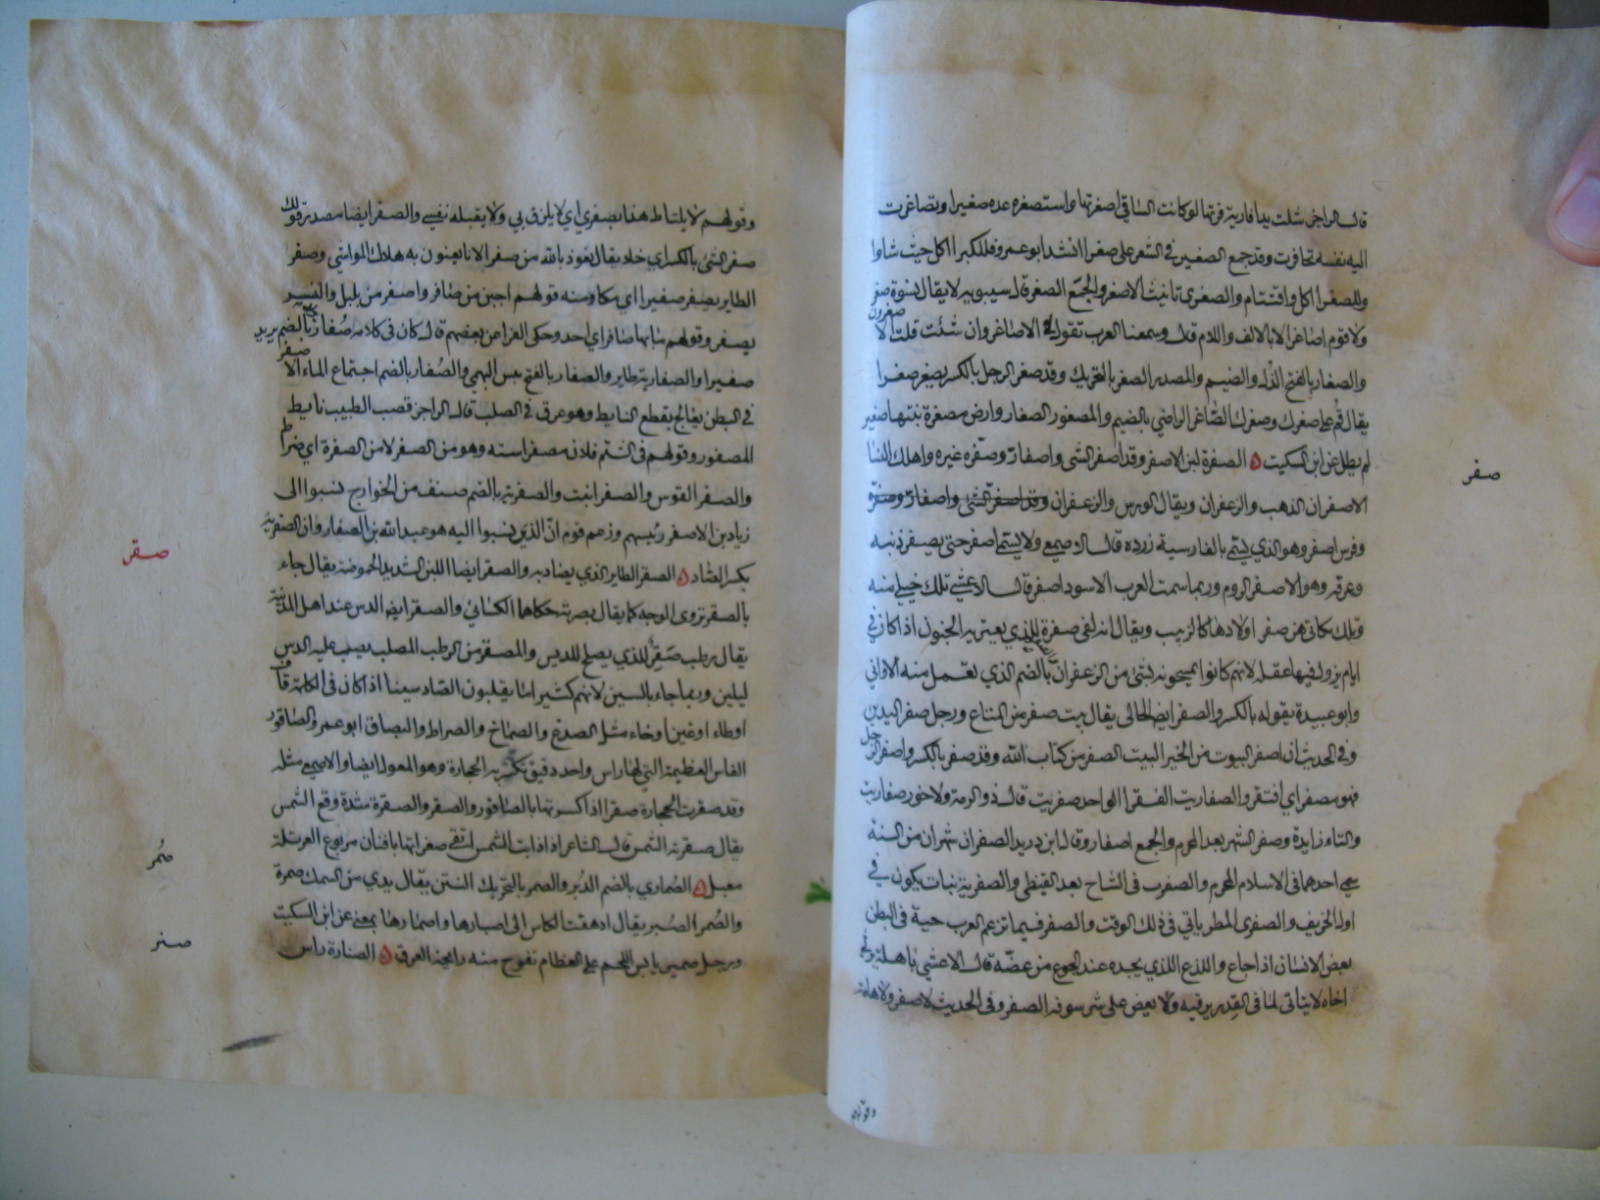 قال الراجز شلت يدا فارية فرتها لو كانت الساقي اصغرتها واستصغره عده صغيرا وتصاغرت
اليه نفسه تحاقرت وقد جمع الصغير في الشعر على صغرا انشد ابو عمرو فللكبرا اكل حيث شاوا
وللصغرا اكل واقتتام والصغرى تانيث الاصغر والجمع الصغر قال سيبويه لا يقال نسوة صغر
ولا قوم اصاغر الا بالالف واللام قال وسمعنا العرب تقول الاصاغر وان شئت قلت الاصغرون
والصغار بالفتح الذل والضيم والمصدر الصغر بالتحريك وقد صغر الرجل بالكسر يصغر صغرا
يقال قم على صغرك وصغرك الصاغر الراضي بالضيم والمصغور الصغار وارض مصغرة نبتها صغير
لم يطل عن ابن السكيت ه الصفرة لون الاصفر وقد اصفر الشى واصفار وصفره غيره واهلك النسا
صفر
الاصفران الذهب والزعفران ويقال الورس والزعفران وقد اصفر الشى واصفار وصفره
وفرس اصفر وهو الذي يسمى بالفارسية زرده قال الاصمعي ولا يسمى اصفر حتى يصفر ذنبه
وعرقه وبنو الاصفر الروم وربما سمت العرب الاسود اصفر قال الاعشى تلك خيلي منه
وتلك ركابي هن صفر اولادها كالزبيب ويقال انه لفى صفرة للذي يعتريه الجنون اذا كان في
ايام يزول فيها عقله لانهم كانوا يمسحونه بشى من الزعفران والصفر بالضم الذي تعمل منه الاواني
وابو عبيدة يقوله بالكسر والصفر ايضا الخالى يقال بيت صفر من المتاع ورجل صفر اليدين
وفي الحديث ان اصفر البيوت من الخير البيت الصفر من كتاب الله وقد صفر بالكسر واصفر الرجل
فهو مصفر اي افتقر والصفاريت الفقرا الواحد صفريت قال ذو الرمة ولا خور صفاريت
والتاء زايدة وصفر الشهر بعد المحرم والجمع اصفار وقال ابن دريد الصفران شهران من السنة
سمي احدهما في الاسلام المحرم والصفرى في النتاج بعد القيظى والصفرية نبات يكون في
اول الخريف والصفرى المطر ياتي في ذلك الوقت والصفر فيما تزعم العرب حية في البطن
تعض الانسان اذا جاع واللذع الذي يجده عند الجوع من عضه قال الاعشى باهلة يرثي
اخاه لا يتاتى لما في القدر يرقبه ولا يعض على شرسوفه الصفر وفي الحديث لا صفر ولا هامة
وقولهم
وقولهم لا يلتاط هذا بصفري اي لا يلزق بي ولا يقبله نفسي والصفر ايضا مصدر قولك
صفر الشى بالكسر اي خلا يقال نعوذ بالله من صفر الانا يعنون به هلاك المواشي وصفر
الطاير يصفر صفيرا اي مكا ومنه قولهم اجبن من صافر واصفر من بلبل والنسر
يصفر وقولهم ما بها صافر اي احد وحكى الفرا عن بعضهم قال كان في كلامه صفار بالضم يريد
صفيرا والصفارية طاير والصفار بالفتح يبس البهمى والصفار بالضم اجتماع الماء الاصفر
في البطن يعالج بقطع النايط وهو عرق في الصلب قال الراجز قصب الطبيب نايط
المصفور وقولهم في الشتم فلان مصفر استه وهو من الصفر لا من الصفرة اي ضراط
والصفر القوس والصفرا نبت والصفرية بالضم صنف من الخوارج نسبوا الى
زياد بن الاصفر رئيسهم وزعم قوم ان الذي نسبوا اليه هو عبد الله بن الصفار وان الصفرية
بكسر الصاد ه الصقر الطاير الذي يصاد به والصقر ايضا اللبن الشديد الحموضة يقال جاء
صقر
بالصقر تزوى الوجه كما يقال بصربة حكاهما الكسائي والصقر ايضا الدبس عند اهل المدينة
يقال رطب صقر للذي يصلح للدبس والمصقر من الرطب المصلب يصب عليه الدبس
ليلين وربما جاء بالسين لانهم كثيرا ما يقلبون الصاد سينا اذا كان في الكلمة قاف
او طاء او غين او خاء مثل الصدغ والصماخ والصراط والبصاق ابو عمرو الصاقور
الفاس العظيمة التي لها راس واحد دقيق تكسر به الحجارة وهو المعول ايضا والاصمعي مثله
وقد صقرت الحجارة صقرا اذا كسرتها بالصاقور والصقر والصقرة شدة وقع الشمس
يقال صقرته الشمس قال الشاعر اذا ذابت الشمس اتقى صقراتها بافنان مربوع الصريمة
معبل ه الصمارى بالضم الدبر والصمر بالتحريك النتن يقال يدي من السمك صمرة
صمر
والصمر الصبر يقال ادهقت الكاس الى اصبارها واصمارها بمعنى عن ابن السكيت
صنر
ورجل صمير يابس اللحم على العظام تفوح منه رايحة العرق ه الصنارة راس